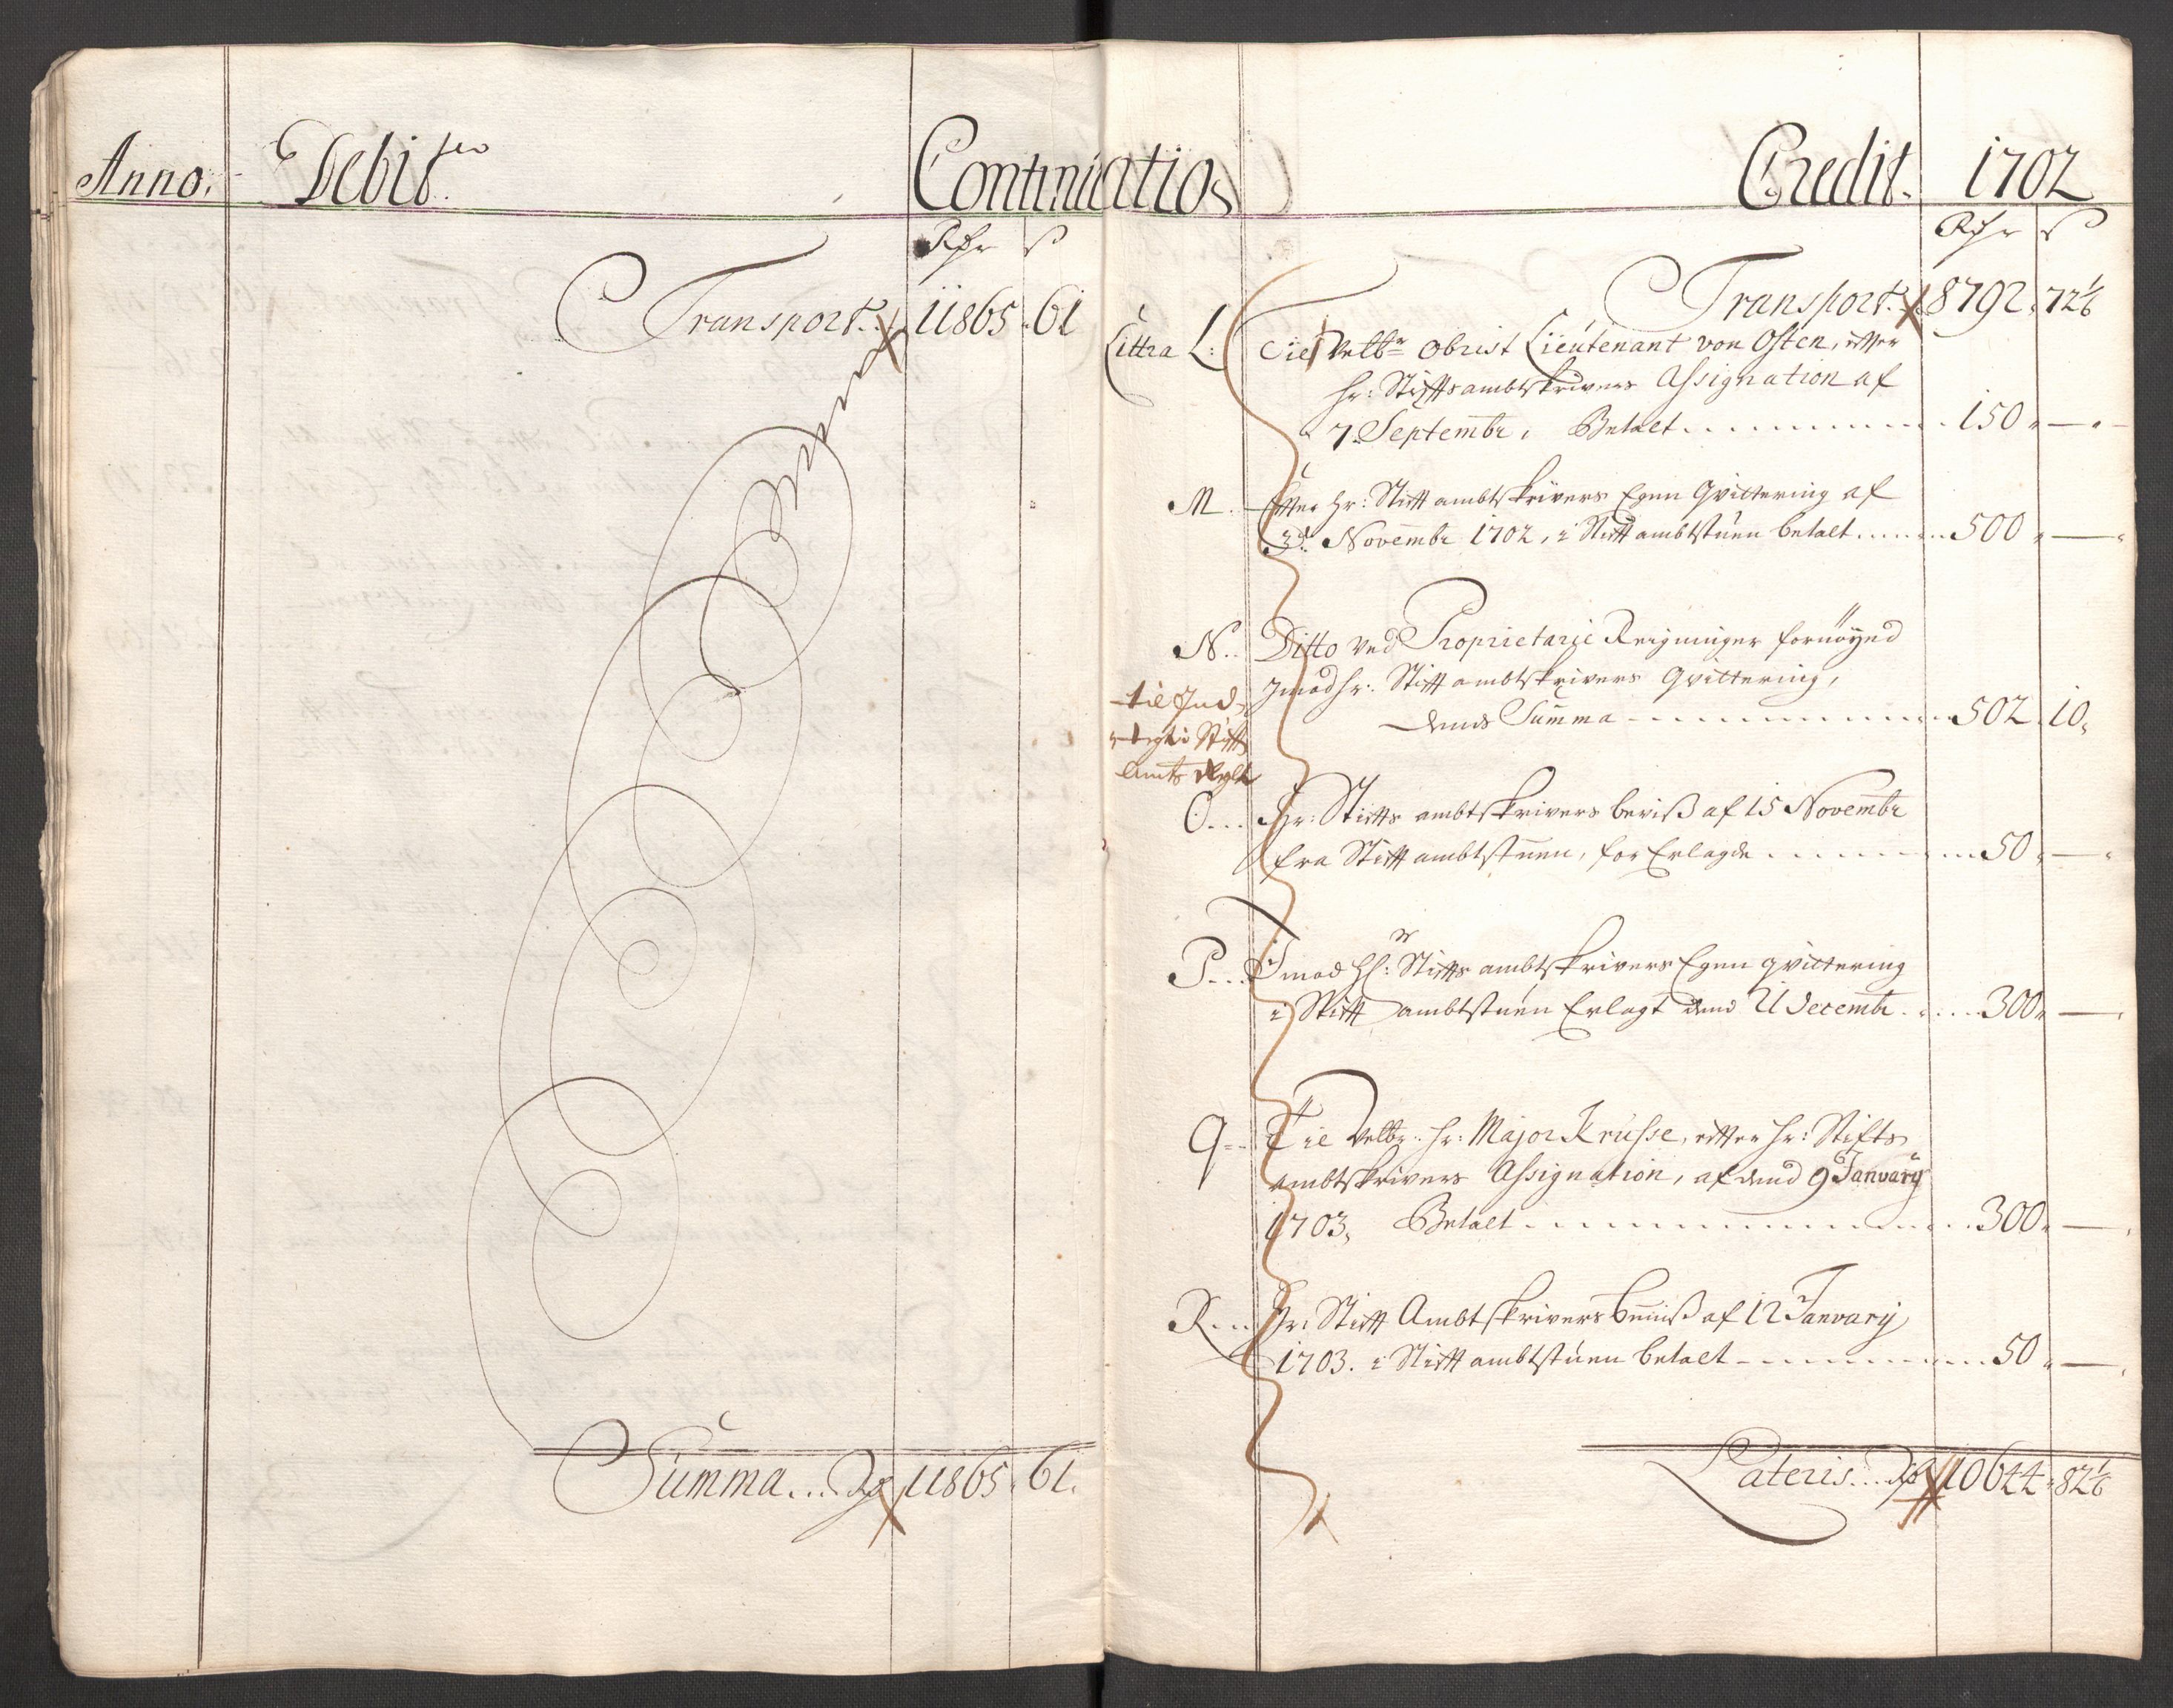 Anno. Debit Continuatio Credit. 1702
Rdr ß
Transport. 11865. 61
Summa... Rd 11865. 61.
Rdr ß
Transport. 8792. 72 1/6
Littra L: Til Velbr Obrist Lieutenant von Osten, efter
hr: Stiftsambtskrivers Assignation af
7 Septembr, Betalt 150 " — "
M. Efter hr: Stiftambtskrivers Egen Qvittering af
3d: Novembr 1702, i Stiftambtstuen betalt 500 " — "
N.. Ditto ved Proprietarje Reigninger fornøyed
Imod hr: Stiftambtskrivers Qvittering,
dends Summa 502. 10,
til
Stifts
Amts
O... Hr: Stifts ambtskrivers beviß af 15 Novembr
fra Stiftambtstuen, for Erlagde 50 " — "
P... Imod Hr: Stifts ambtskrivers Egen qvittering
i Stift ambtstuen Erlagt dend 21 Decembr 300 " —
Q... Til Velbr. hr: Major Krusse, efter hr: Stifts
ambtskrivers Assignation, af dend 9 January
1703, Betalt 300 " —
R... Hr: Stift Ambtskrivers beviiß af 12 January
1703. i Stiftambtstuen betalt 50 " —
Lateris... Rd 10644 " 82 1/6